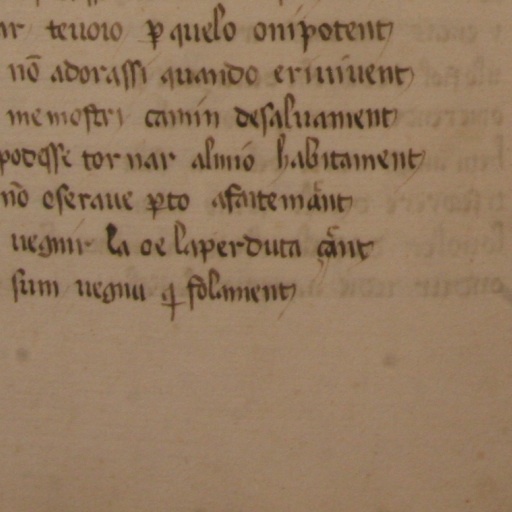 ar teuoio ꝑ quelo onipotent
nō adorassi quando eriuiuent
me mostri camin desaluament
podesse tornar almio habitament
nō oseraue ꝑto afaitemānt
uegnir la oe laperduta çānt
sum uegnu qi solament